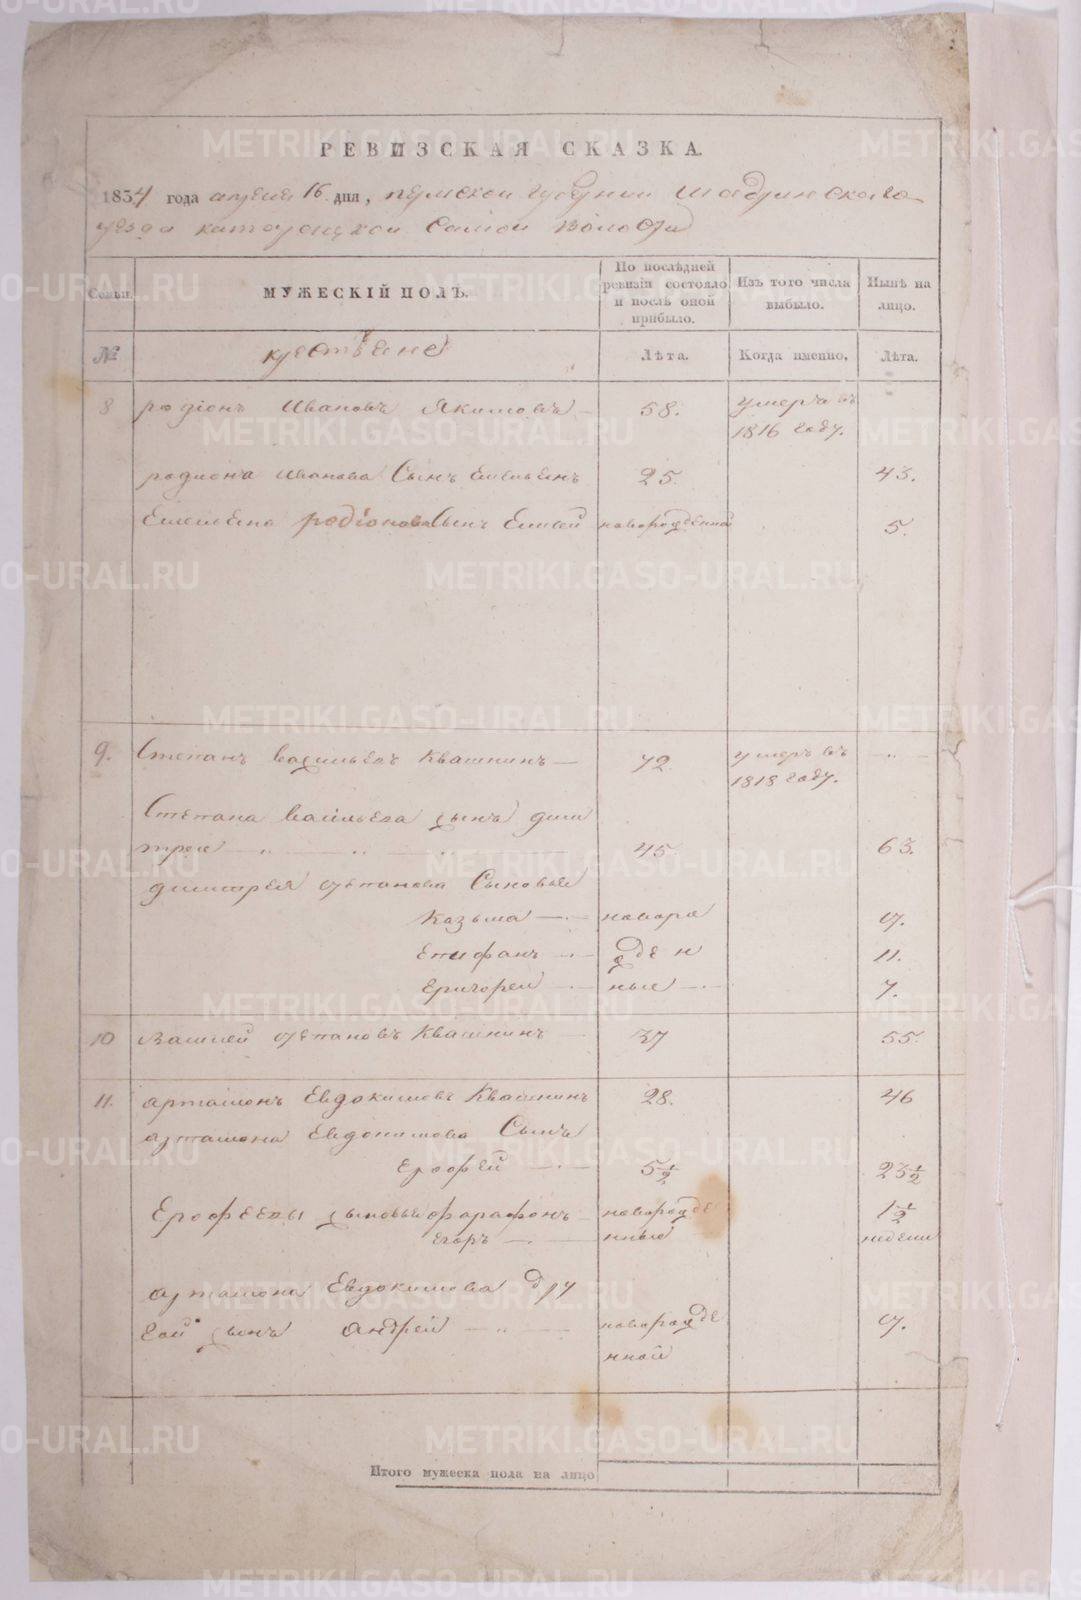 РЕВИЗСКАЯ СКАЗКА.
1834 года апреля 16 дня, пермской губернии Шадринскаго
уезда катайской Самой Волости
Семьи. МУЖЕСКІЙ ПОЛЪ. По послѣдней ревизіи состояло и послѣ оной прибыло. Изъ того числа выбыло. Нынѣ на лицо.
№ крестьяне Лѣта. Когда именно. Лѣта.
8 родіонъ Ивановъ Якимовъ 58. умеръ въ
1816 году.
родиона Иванова Сынъ Емельянъ 25. 43.
Емельяна родіонова Сынъ Елисей новорожденной 5.
9. Степанъ васильевъ Квашнинъ 72. умеръ въ
1818 году.
Степана васильева сынъ дми
трей 45 63.
димитрея степанова Сыновья
Козьма новоро 9.
Епифанъ жден 11.
Григорей ные 7.
10 Василей степановъ Квашнинъ 37 55.
11. артамонъ Евдокимовъ Квашнинъ 28. 46
артамона Евдокимова Сынъ
Ерофей 5½ 23½
Ерофеевы сыновья фарафонъ новорожде 1½
Егоръ нные недели
артамона Евдокимова дру
гой сынъ Андрей новорожде 9.
нной
Итого мужеска пола на лицо
METRIKI.GASO-URAL.RU